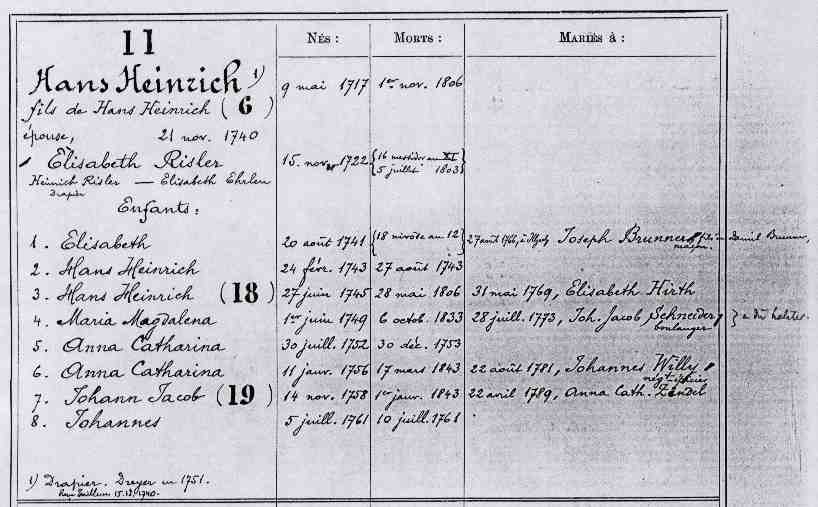 11
NÉS : MORTS : MARIÉS À :
Hans Heinrich 1) 9 mai 1717 1er nov. 1806
fils de Hans Heinrich (6)
épouse, 21 nov. 1740
Elisabeth Risler 15. nov. 1722 {16 messidor an XI 5 juillet 1803}
Heinrich Risler — Elisabeth Ehrlen
Drapier
Enfants :
1. Elisabeth 20 août 1741 {18 nivôse an 12} 27 août 1766, à Joseph Brunner, fils de Daniel Brunner,
maçon.
2. Hans Heinrich 24 févr. 1743 27 août 1743
3. Hans Heinrich (18) 27 juin 1745 28 mai 1806 31 mai 1769, Elisabeth Hirth
4. Maria Magdalena 1er juin 1749 6 octob. 1833 28 juill. 1773, Joh. Jacob Schneider
boulanger
5. Anna Catharina 30 juill. 1752 30 déc. 1753
6. Anna Catharina 11 janv. 1756 17 mars 1843 22 août 1781, Johannes Willy
négt
7. Johann Jacob (19) 14 nov. 1758 1er janv. 1843 22 avril 1789, Anna Cath. Zindel
8. Johannes 5 juill. 1761 10 juill. 1761
1) Drapier. Dreyer in 1751.
1740.